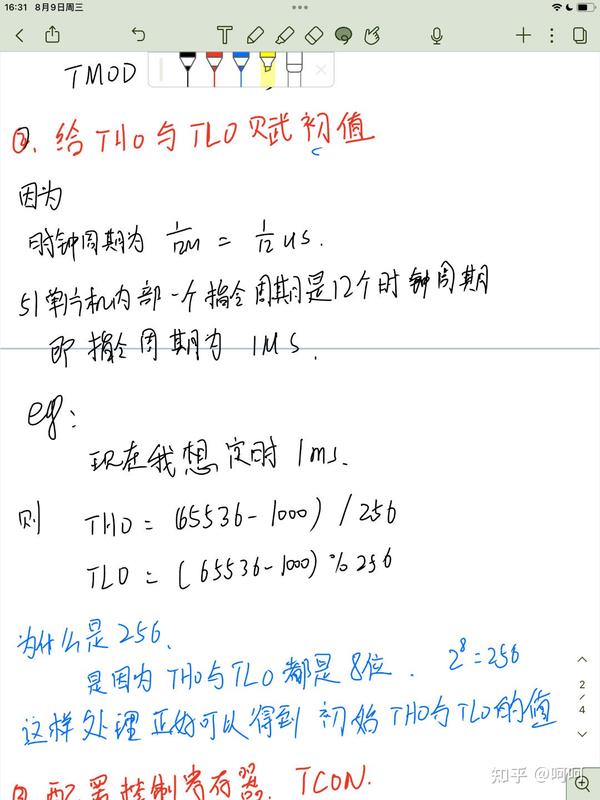 16:31 8月9日周三
TMOD
②. 给TH0与TL0赋初值
因为
时钟周期为 1/12M = 1/12 us.
51单片机内部一个指令周期是12个时钟周期
即 指令周期为 1MS.
eg:
现在我想定时 1ms.
则 TH0 = (65536-1000) / 256
TL0 = (65536-1000) % 256
为什么是256.
是因为TH0与TL0都是8位. 2^8=256
这样处理正好可以得到初始TH0与TL0的值
2
4
配置控制寄存器. TCON.
知乎 @呵呵